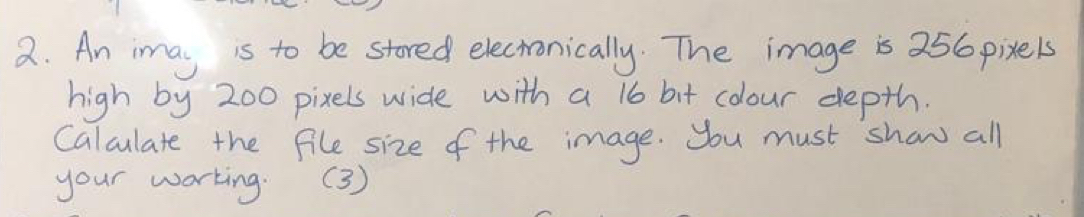 2. An is to be stored electronically. The image is 256 pixels
high by 200 pixels wide with a 16 bit colour depth.
Calculate the file size of the image. You must show all
your working. (3)